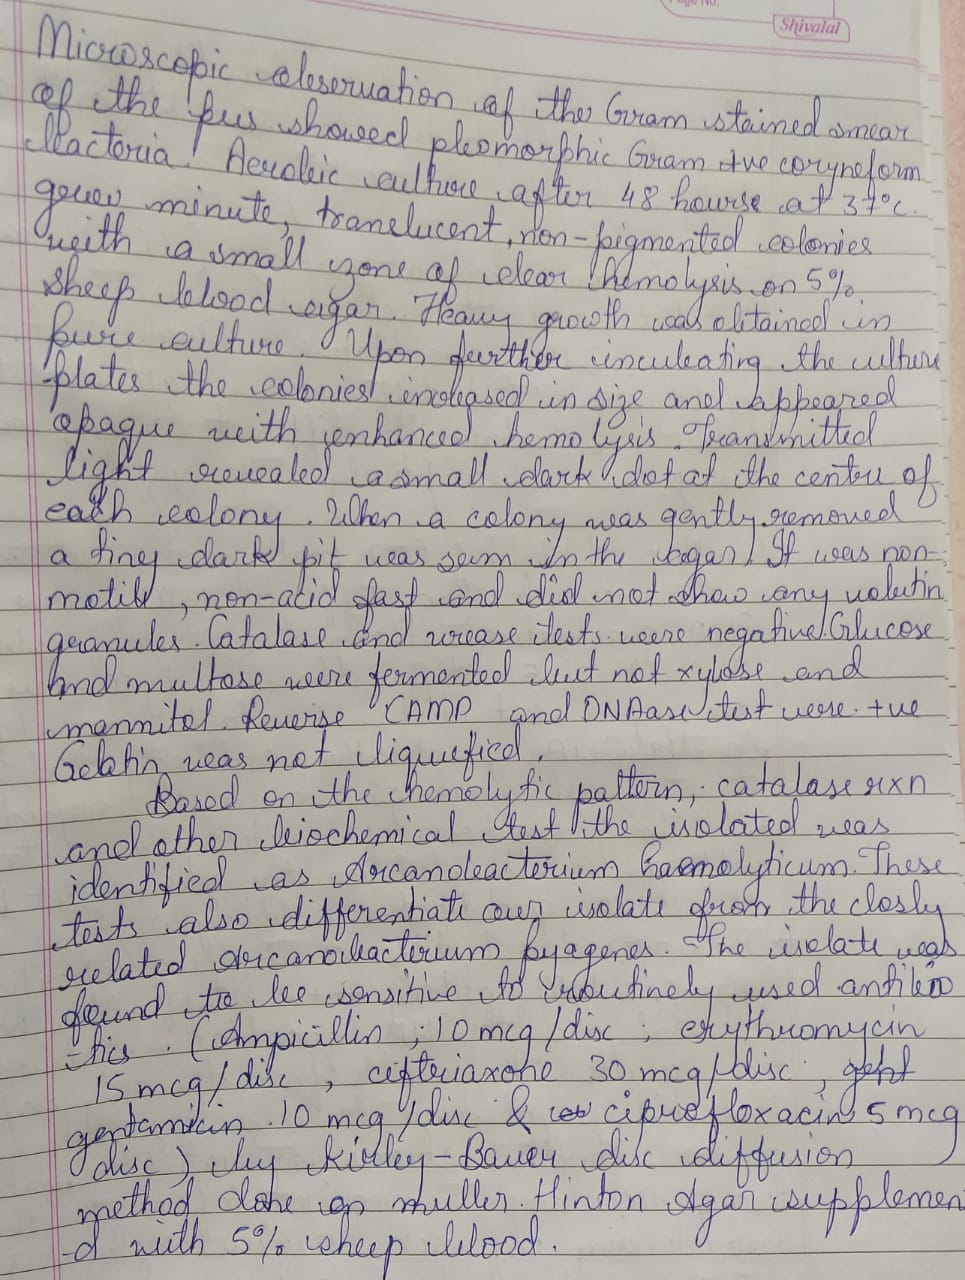 Page No.
Shivalal
Microscopic observation of the Gram stained smear
of the pus showed pleomorphic Gram +ve coryneform
bacteria. Aerobic culture after 48 hourse at 37°c.
grew minute, translucent, non-pigmented colonies
with a small zone of clear hemolysis on 5%
sheep blood agar. Heavy growth was obtained in
pure culture. Upon further incubating the culture
plates the colonies increased in size and appeared
opaque with enhanced hemolysis. Transmitted
light revealed a small dark dot at the centre of
each colony. When a colony was gently removed
a tiny dark pit was seen in the agar. It was non-
motile, non-acid fast and did not show any volutin
granules. Catalase and urease tests were negative. Glucose
and multose were fermented but not xylose and
mannitol. Reverse CAMP and DNAase test were +ve
Gelatin was not liquefied.
Based on the hemolytic pattern, catalase rxn
and other biochemical test the isolated was
identified as Arcanobacterium haemolyticum. These
tests also differentiate our isolate from the closly
related arcanobacterium pyagenes. The isolate was
found to be sensitive to routinely used antibio
-tics. (Ampicillin ; 10 mcg/disc ; erythromycin
15 mcg/disc , ciftriaxone 30 mcg/disc , gent
gentamicin 10 mcg/disc & ciprofloxacin 5 mcg
disc) by Kirley-Bauer disc diffusion
method done on muller. Hinton Agar supplemen
-d with 5% sheep blood.